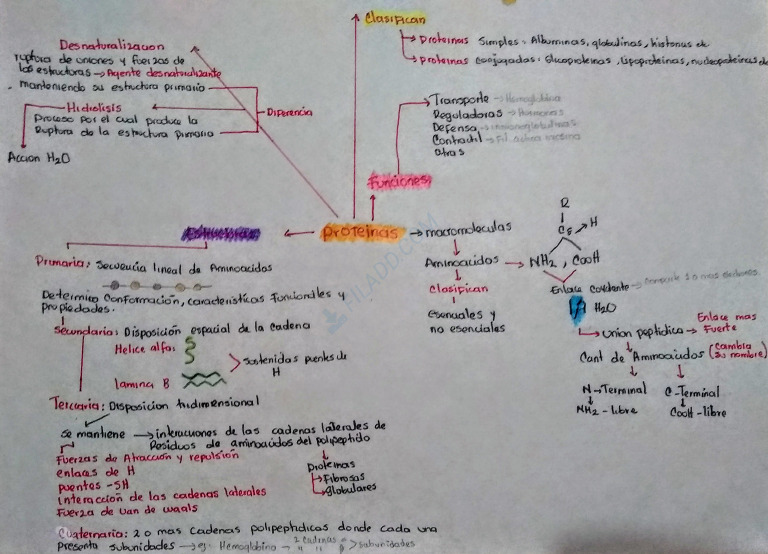 Clasifican
Proteinas Simples: Albuminas, globulinas, histonas de
proteinas Conjugadas: Glucoproteinas, lipoproteinas, nucleoproteinas de
Desnaturalización
ruptura de uniones y fuerzas de
las estructuras → Agente desnaturalizante
manteniendo su estructura primaria
Hidrolisis
Diferencia
Proceso por el cual produce la
Ruptura de la estructura Primaria
Accion H2O
Transporte → Hemoglobina
Reguladoras → Hormonas
Defensa → inmunoglobulinas
Contractil → Fil. actina miosina
otras
Funciones
Estructuras
proteinas
macromoleculas
Aminoacidos
Clasifican
esenciales y
no esenciales
R
H
NH2, COOH
Enlace Covalente → comparte 1 o mas electrones
H2O
union peptidica → Enlace mas
Fuerte
Cant de Aminoacidos (cambia
su nombre)
N-Terminal
NH2-libre
C-Terminal
COOH-libre
Primaria: Secuencia lineal de Aminoacidos
Determina Conformación, características Funcionales y
propiedades.
Secundaria: Disposición espacial de la cadena
Helice alfa:
lamina B
sostenidas puentes de
H
Terciaria: Disposicion tridimensional
se mantiene → interacciones de las cadenas laterales de
Residuos de aminoacidos del polipeptido
Fuerzas de Atracción y repulsión
enlaces de H
puentes -SH
interacción de las cadenas laterales
Fuerza de van de waals
Proteinas
Fibrosas
Globulares
Cuaternaria: 2 o mas cadenas polipeptidicas donde cada una
presenta subunidades → ej: Hemoglobina
2 cadenas
subunidades
HILADO.COM